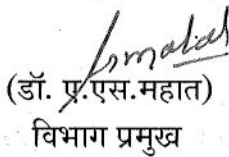 (डॉ. ए.एस.महात)
विभाग प्रमुख